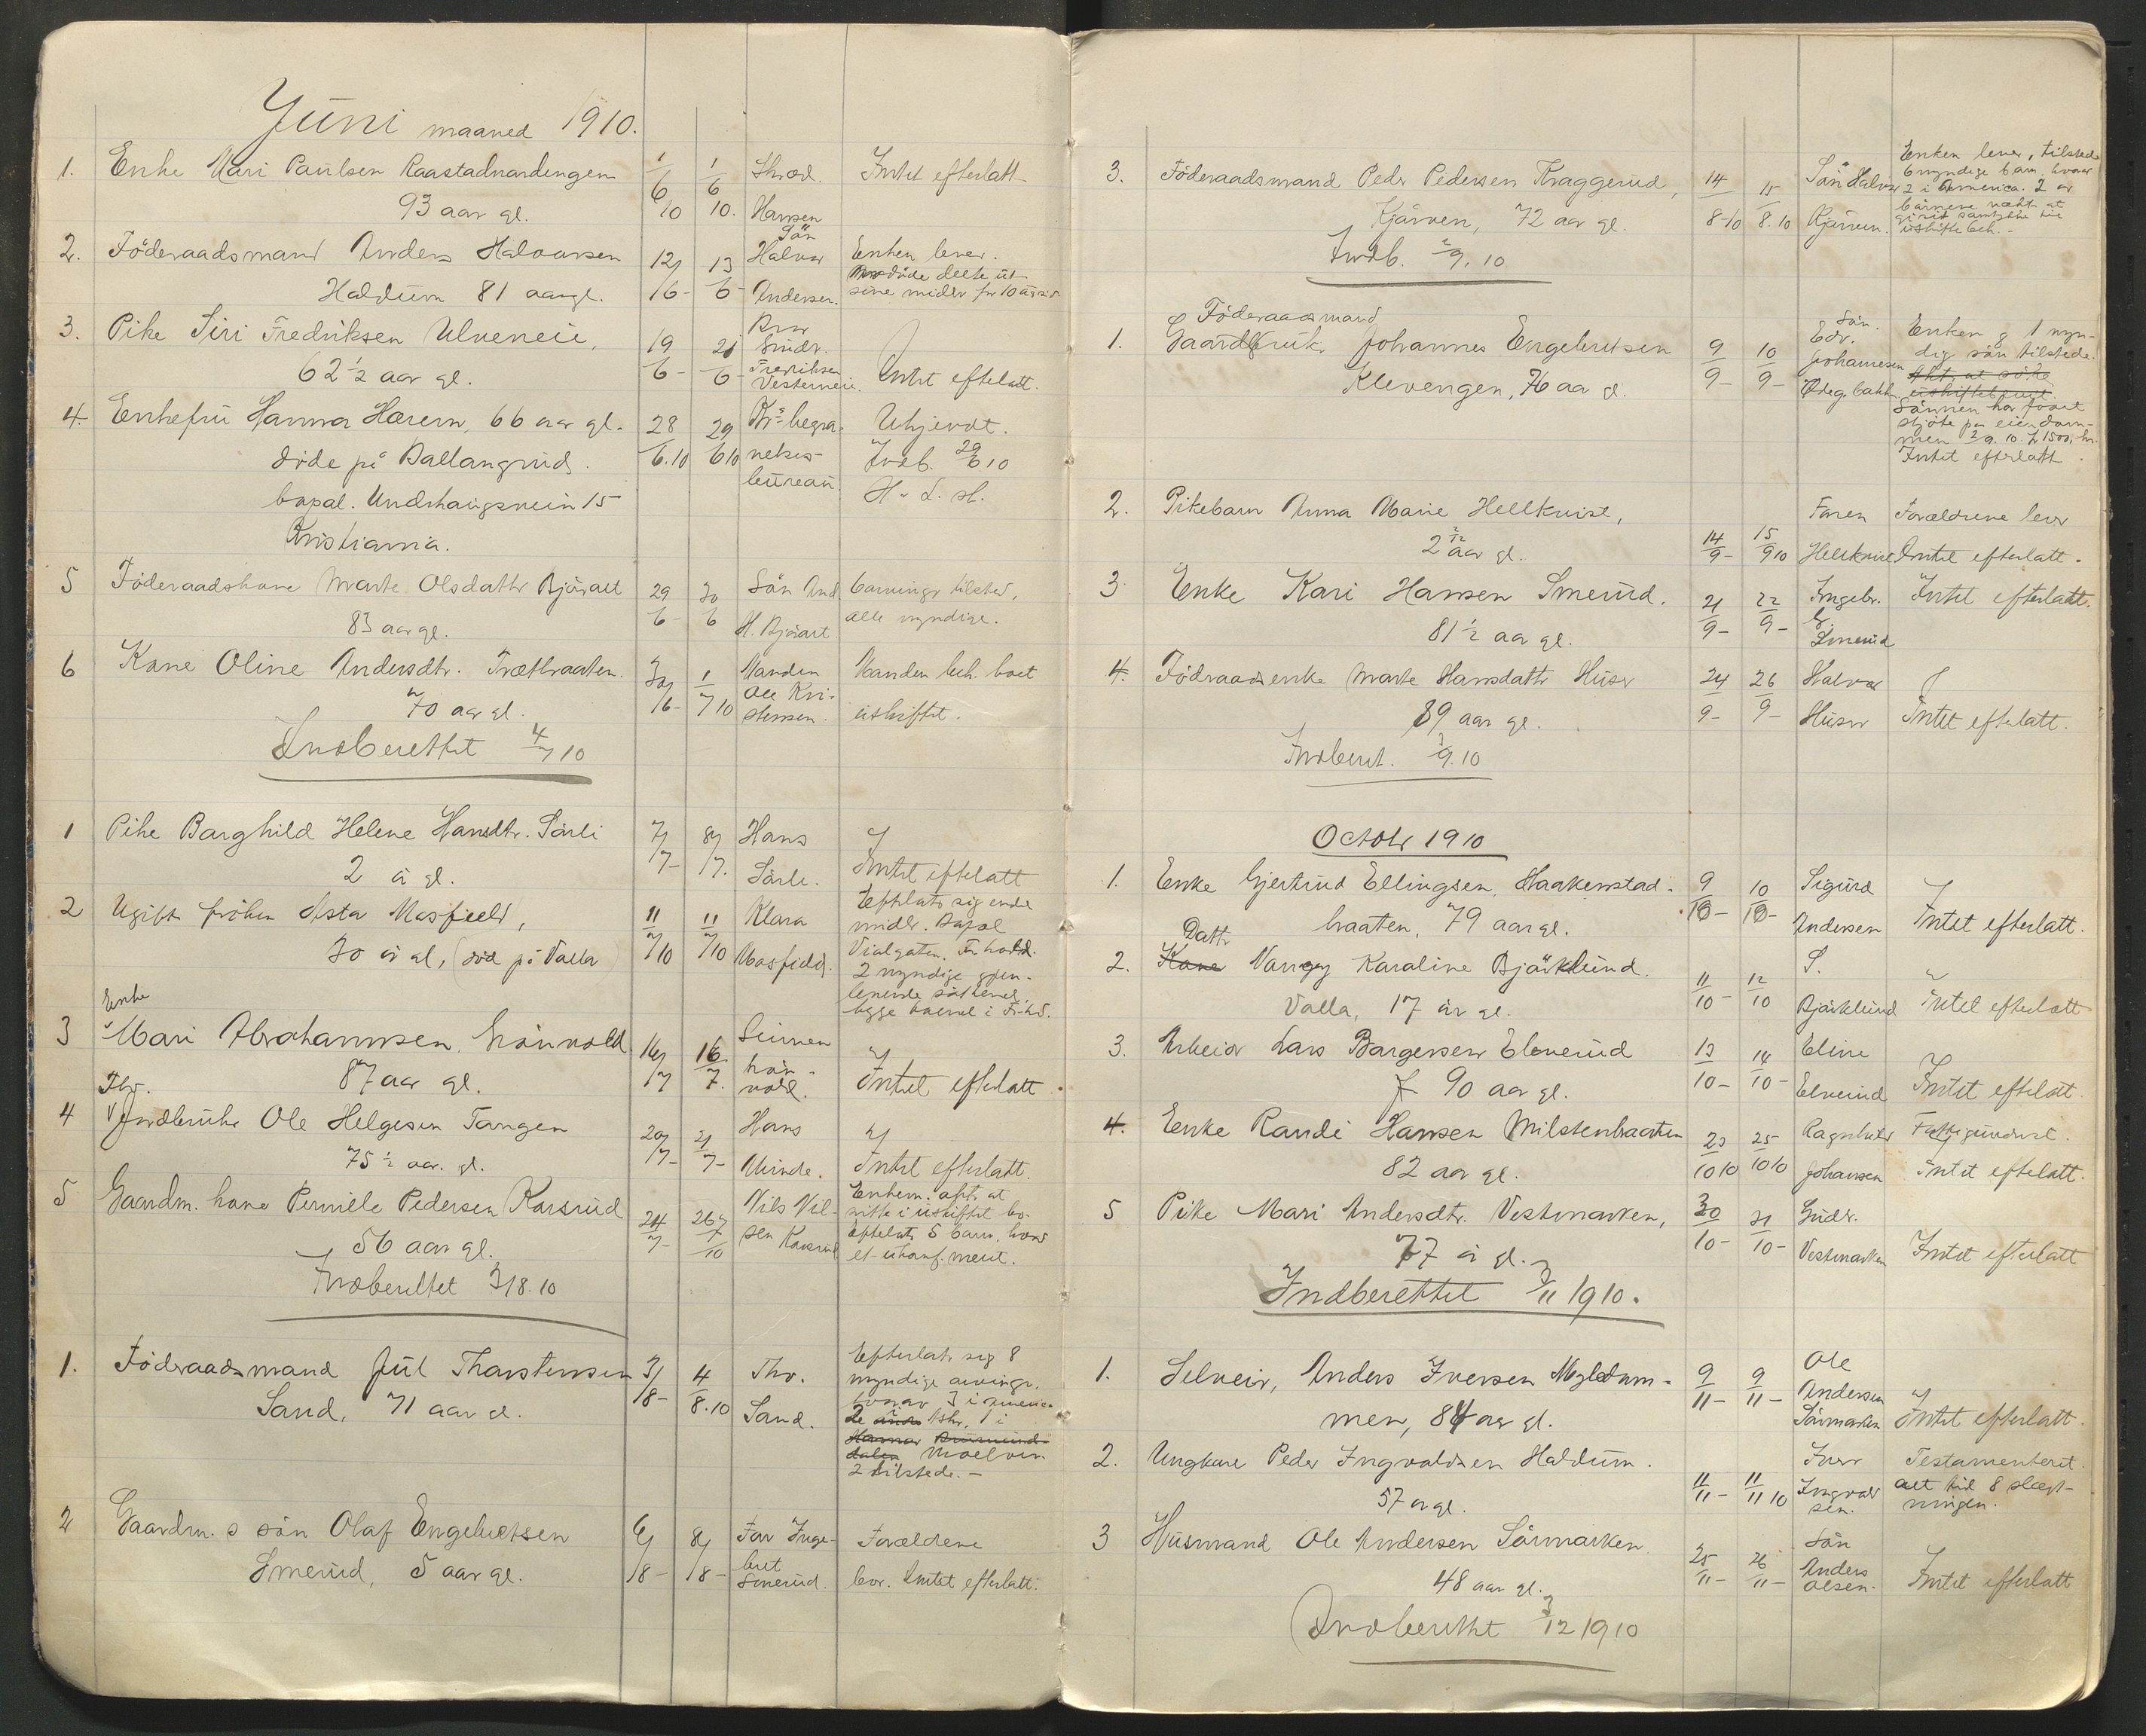 Juni maaned 1910.
1. Enke Mari Paulsen 1/6 10 1/6 10. Intet efterlatt
93 aar gl. Hansen
2. Föderaadsmand Anders Halvorsen 12/6- 13/6- Sön Halvor Andersen. Enken lever.
Haldum 81 aar gl. döde delte ut
sine midler for 10 aar sid.
3. Pike Siri Fredriksen Ulveneie, 19/6- 21/6- Bror Gudr. Fredriksen
62 1/2 aar gl. Intet efterlatt.
4. Enkefru Hanna Harem, 66 aar gl. 28/6.10 29/6 10 Kr.a begravelsesbureau. Ukjendt.
döde på Ballangrud. Indb. 29/6 10
bopæl. Underhaugsvein 15 H. L. sk.
Kristiania.
5 Föderaadskone Marte Olsdatter Björalt 29/6- 30/6 Sön And. H. Björalt arvinger tilsted,
83 aar gl. alle myndige.
6 Kone Oline Andersdtr. Trætbraaten. 30/6- 1/7 10 Manden Ole Kristensen. Manden beh. boet
70 aar gl. uskiftet.
Indberettet 4/7 10
1 Pike Borghild Helene Hansdtr. Sörli 7/7- 8/7. Hans Sörli. Intet efterlatt
2 år gl.
2 Ugift fröken Asta Masfield, 11/7 10 11/7 10 Klara Masfield. Efterlater sig ende
30 år gl, (död på Valla) midler. Bopæl
2 myndige gjen-
levende söskend,
begge bosend i Fr.hd.
3 Enke Mari Abrahamsen Grönvold. 16/7 16/7. Grönvold. Intet efterlatt.
87 aar gl.
4 Fhv. Jordbruker Ole Helgesen Tangen 20/7- 21/7- Hans Intet efterlatt.
75 1/2 aar. gl.
5 Gaardm. kone Pernille Pedersen Korsrud 24/7- 26/7 10 Nils Nilsen Korsrud Enkem. agter at
56 aar gl. sitte i uskiftet bo.
Efterlater 5 barn, hvorav
Indberettet 3/8.10 et ukonfirmert.
1. Föderaadsmand Jul Thorstensen 3/8- 4/8.10 Thv. Sand. Efterlater sig 8
Sand, 71 aar gl. myndige arvinger.
hvorav 3 i America
Moelven
2 tilstede. -
2 Gaardm.s sön Olaf Engebretsen 6/8- 8/8- Far Ingebret Smerud. Forældrene
Smerud, 5 aar gl. lever. Intet efterlatt.
3. Föderaadsmand Peder Pedersen Kraggerud, 14/8-10 15/8.10 Sön Halvor Kjärven. Enken lever, tilstede
Kjärven, 72 aar gl. 6 myndige barn, hvorav
2 i America. 2 av
Indb. 2/9. 10
1. Föderaadsmand
Gaardbruker Johannes Engebretsen 9/9- 10/9- Sön. Edv. Johannesen Ödeg.bakk. Enken og 1 myn-
Klevengen, 76 aar gl. dig sön tilstede.
Agter at söke
uskiftet
Sönnen har faaet
skjöte på eiendom-
men 2/9. 10. f. 1500,- kr.
Intet efterlatt.
2. Pikebarn Anna Marie Hellkvist, 14/9- 15/9 10 Faren Hellkvist Forældrene lever
2 aar gl. Intet efterlatt.
3 Enke Kari Hansen Smerud. 21/9- 22/9- Ingebr. E. Smerud Intet efterlatt.
81 1/2 aar gl.
4. Födraadsenke Marte Hansdatter Huser 24/9- 26/9- Halvor Huser Intet efterlatt.
89 aar gl.
Indberet. 9.10
October 1910
1. Enke Gjertrud Ellingsen, Haakenstad- 9/10- 10/10- Sigurd Andersen Intet efterlatt.
braaten, 79 aar gl.
2. Datter Kone Karoline Björklund. 11/10- 12/10 S. Björklund Intet efterlatt
Valla, 17 år gl.
3. Arbeider Lars Borgersen Elverud 13/10- 14/10- Eline Elverud Intet efterlatt.
f. 90 aar gl.
4. Enke Randi Hansen Milstenbraaten 23/10 10 25/10 10 Johansen Fattigunderst.
82 aar gl. Intet efterlatt.
5 Pike Mari Andersdtr. Vestmarken, 30/10- 31/10- Gudr. Vestmarken Intet efterlatt
77 år gl.
Indberettet 3/11 1910.
1. Selveier, Anders Iversen 9/11- 9/11- Ole Andersen Sörmarken Intet efterlatt.
men, 84 aar gl.
2. Ungkare Peder Ingvaldsen Haldum. 11/11- 11/11 10 Iver Ingvaldsen. Testamenteret
57 år gl. alt til 8 slægt-
ningen.
3 Husmand Ole Andersen Sörmarken 25/11- 26/11- Sön Anders Olsen. Intet efterlatt
48 aar gl.
Indberettet 3/12 1910